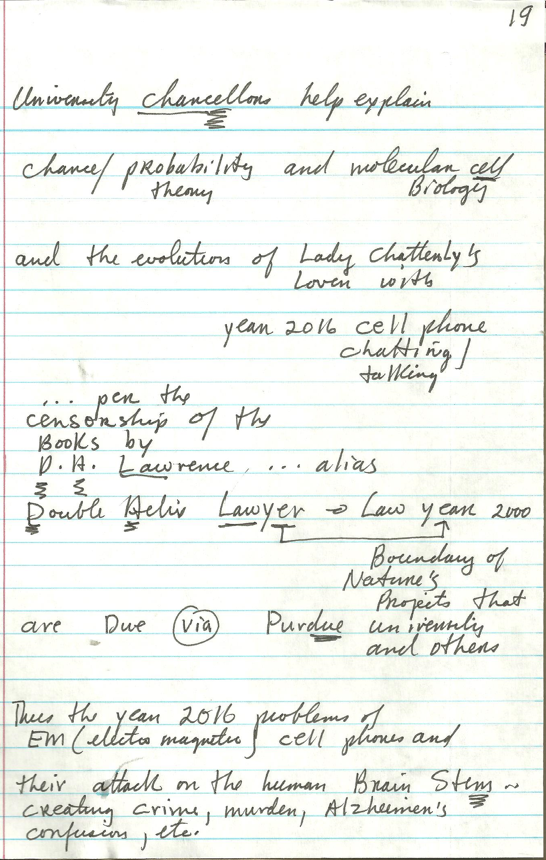 19
University chancellors help explain
chance/ probability and molecular cell
theory Biology
and the evolution of Lady Chatterly's
Lover with
year 2016 cell phone
chatting/
talking
... per the
censorship of the
Books by
D.H. Lawrence ... alias
Double Helix Lawyer → Law year 2000
Boundary of
Nature's
Projects that
are Due via Purdue university
and others
Thus the year 2016 problems of
EM (electro magnetic) cell phones and
their attack on the human Brain Stem ~
creating crime, murder, Alzheimer's
confusion, etc.